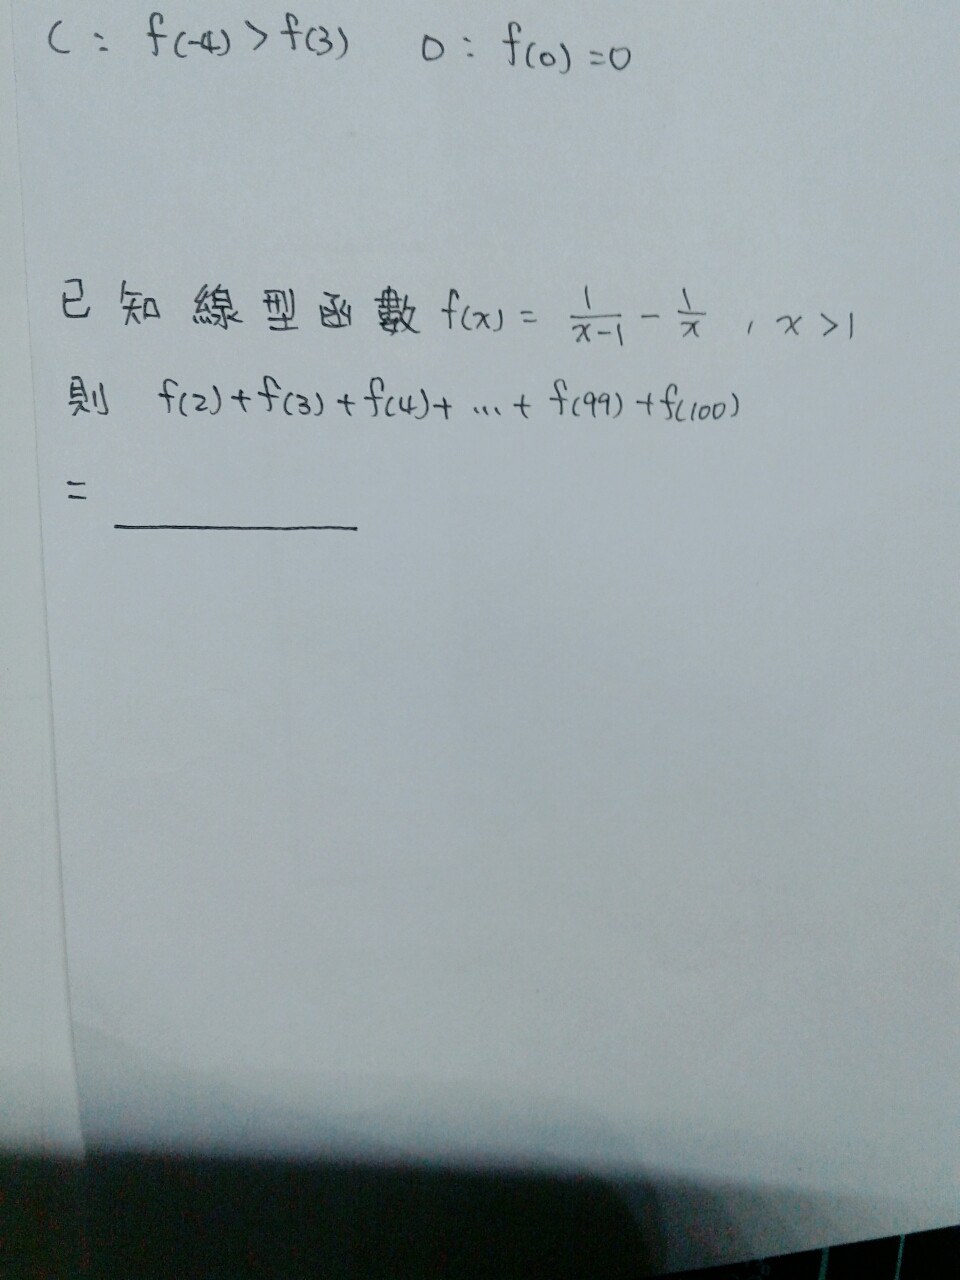 C : f(-4) > f(3) D : f(0) = 0
已知線型函數 f(x) = \frac{1}{x-1} - \frac{1}{x} , x > 1
則 f(2) + f(3) + f(4) + ... + f(99) + f(100)
= ________